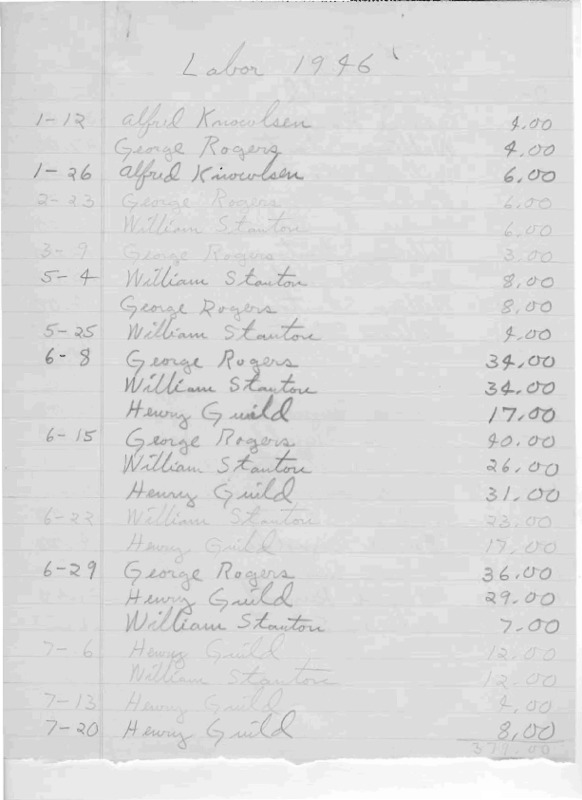 Labor 1946
1-12 Alfred Knowlsen 4.00
George Rogers 4.00
1-26 Alfred Knowlsen 6.00
2-23 George Rogers 6.00
William Stanton 6.00
3-9 George Rogers 3.00
5-4 William Stanton 8.00
George Rogers 8.00
5-25 William Stanton 4.00
6-8 George Rogers 34.00
William Stanton 34.00
Henry Guild 17.00
6-15 George Rogers 40.00
William Stanton 26.00
Henry Guild 31.00
6-22 William Stanton 23.00
Henry Guild 17.00
6-29 George Rogers 36.00
Henry Guild 29.00
William Stanton 7.00
7-6 Henry Guild 12.00
William Stanton 12.00
7-13 Henry Guild 4.00
7-20 Henry Guild 8.00
379.00